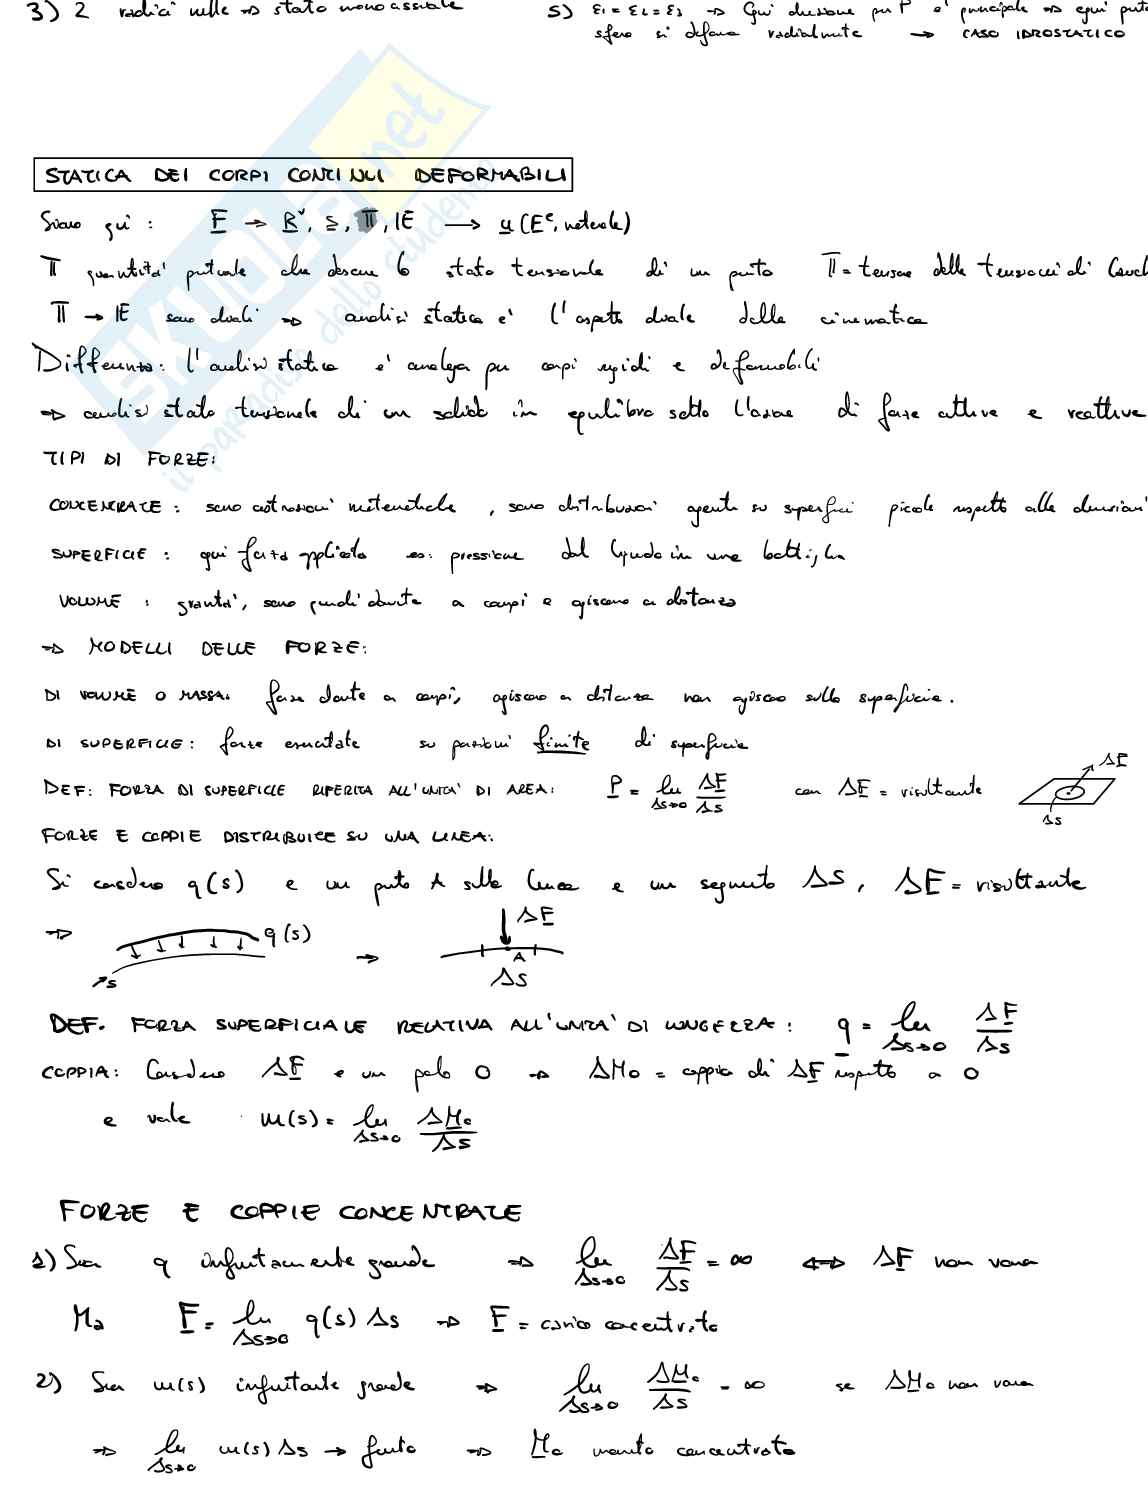 3) 2 radici nulle ⇒ stato monoassiale
5) ε₁ = ε₂ = ε₃ → Ogni direzione per P è principale ⇒ ogni
sfera si deforma radialmente → CASO IDROSTATICO
STATICA DEI CORPI CONTINUI DEFORMABILI
Siamo qui : F → R^v, s, T, E → u (E^e, materiale)
T quantità puntuale che descrive lo stato tensionale di un punto T = tensore delle tensioni di
T → E sono duali ⇒ analisi statica e' l'aspetto duale della cinematica
Differenza: l'analisi statica e' analoga per corpi rigidi e deformabili
⇒ analisi stato tensionale di un solido in equilibrio sotto l'azione di forze attive e reattive
TIPI DI FORZE:
CONCENTRATE : sono astrazioni matematiche , sono distribuzioni agenti su superfici piccole rispetto alle dimensioni
SUPERFICIE : ogni forza applicata es: pressione del liquido in una bottiglia
VOLUME : gravità', sono quindi dovute a campi e agiscono a distanza
⇒ MODELLI DELLE FORZE:
DI VOLUME O MASSA: forze dovute a campi, agiscono a distanza non agiscono sulla superficie.
DI SUPERFICIE: forze esercitate su porzioni finite di superficie
DEF: FORZA DI SUPERFICIE RIFERITA ALL'UNITA' DI AREA: P = lim ΔS→0 ΔF/ΔS con ΔF = risultante
ΔF
ΔS
FORZE E COPPIE DISTRIBUITE SU UNA LINEA:
Si considera q(s) e un punto A sulla linea e un segmento ΔS, ΔF = risultante
⇒ q(s) → ΔF
s A
ΔS
DEF. FORZA SUPERFICIALE RELATIVA ALL'UNITA' DI LUNGEZZA : q = lim Δs→0 ΔF/Δs
COPPIA: Considero ΔF e un polo O ⇒ ΔMo = coppia di ΔF rispetto a O
e vale m(s) = lim Δs→0 ΔMo/Δs
FORZE E COPPIE CONCENTRATE
1) Sia q infinitamente grande ⇒ lim Δs→0 ΔF/Δs = ∞ ⇔ ΔF non varia
Ma F = lim Δs→0 q(s) Δs ⇒ F = carico concentrato
2) Sia m(s) infinitante grande ⇒ lim Δs→0 ΔMo/Δs = ∞ se ΔMo non varia
⇒ lim Δs→0 m(s) Δs → finito ⇒ Mo momento concentrato
SKUOLA.net
il paradiso dello studente